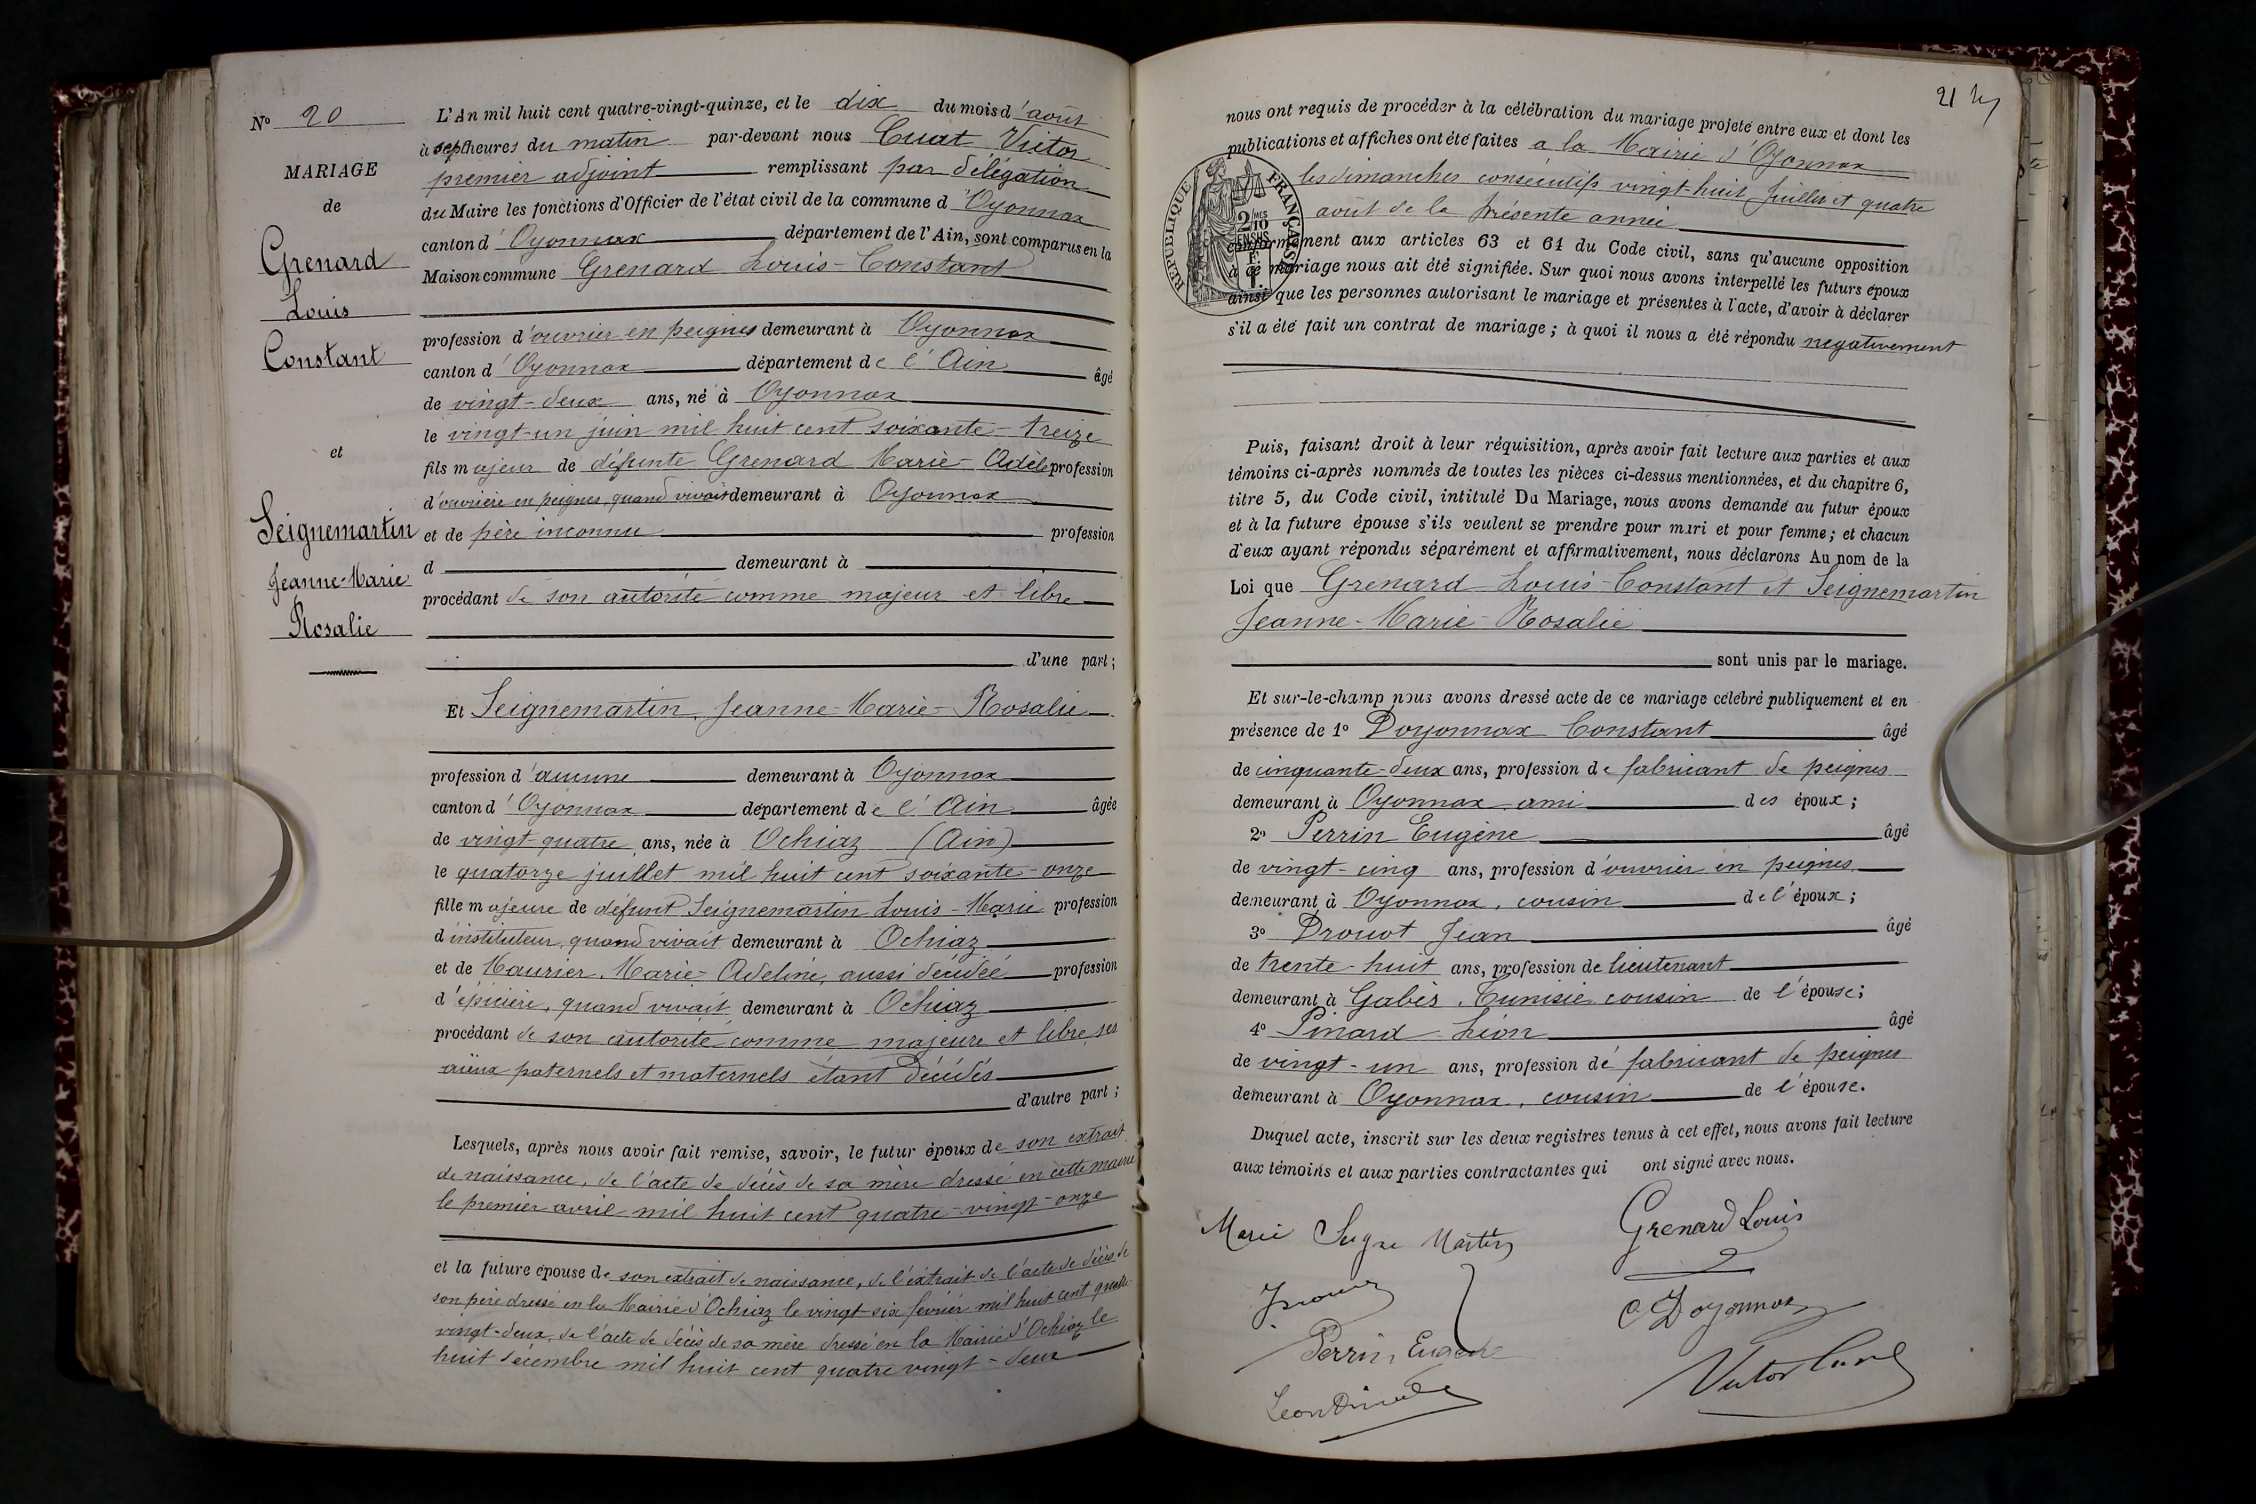 Nº 20
MARIAGE
de
Grenard
Louis
Constant
et
Seignemartin
Jeanne-Marie
Rosalie
L'An mil huit cent quatre-vingt-quinze, et le dix du mois d'août
à sept heures du matin par-devant nous Cuat Victor
premier adjoint remplissant par délégation
du Maire les fonctions d'Officier de l'état civil de la commune d'Oyonnax
canton d'Oyonnax département de l'Ain, sont comparus en la
Maison commune Grenard Louis-Constant
profession d'ouvrier en peignes demeurant à Oyonnax
canton d'Oyonnax département de l'Ain âgé
de vingt-deux ans, né à Oyonnax
le vingt-un juin mil huit cent soixante-treize
fils majeur de défunte Grenard Marie-Adèle profession
d'ouvrière en peignes, quand vivait demeurant à Oyonnax
et de père inconnu profession
d demeurant à
procédant de son autorité comme majeur et libre
d'une part;
Et Seignemartin, Jeanne-Marie-Rosalie
profession d'aucune demeurant à Oyonnax
canton d'Oyonnax département de l'Ain âgée
de vingt-quatre ans, née à Ochiaz (Ain)
le quatorze juillet mil huit cent soixante-onze
fille majeure de défunt Seignemartin Louis-Marie profession
d'instituteur, quand vivait demeurant à Ochiaz
et de Maurier, Marie-Adeline, aussi décédée profession
d'épicière, quand vivait demeurant à Ochiaz
procédant de son autorité comme majeure et libre, ses
aïeux paternels et maternels étant décédés
d'autre part;
Lesquels, après nous avoir fait remise, savoir, le futur époux de son extrait
de naissance, de l'acte de décès de sa mère dressé en cette mairie
le premier avril mil huit cent quatre-vingt-onze
et la future épouse de son extrait de naissance, de l'extrait de l'acte de décès de
son père dressé en la Mairie d'Ochiaz le vingt-six février mil huit cent quatre-
vingt-deux, de l'acte de décès de sa mère dressé en la Mairie d'Ochiaz le
huit décembre mil huit cent quatre vingt-deux
21
nous ont requis de procéder à la célébration du mariage projeté entre eux et dont les
publications et affiches ont été faites à la Mairie d'Oyonnax
les dimanches consécutifs vingt-huit Juillet et quatre
août de la présente année
RÉPUBLIQUE FRANÇAISE
2/10 EN SUS
conformément aux articles 63 et 64 du Code civil, sans qu'aucune opposition
à ce mariage nous ait été signifiée. Sur quoi nous avons interpellé les futurs époux
ainsi que les personnes autorisant le mariage et présentes à l'acte, d'avoir à déclarer
s'il a été fait un contrat de mariage; à quoi il nous a été répondu négativement
Puis, faisant droit à leur réquisition, après avoir fait lecture aux parties et aux
témoins ci-après nommés de toutes les pièces ci-dessus mentionnées, et du chapitre 6,
titre 5, du Code civil, intitulé Du Mariage, nous avons demandé au futur époux
et à la future épouse s'ils veulent se prendre pour mari et pour femme; et chacun
d'eux ayant répondu séparément et affirmativement, nous déclarons Au nom de la
Loi que Grenard Louis-Constant et Seignemartin
Jeanne-Marie-Rosalie
sont unis par le mariage.
Et sur-le-champ nous avons dressé acte de ce mariage célébré publiquement et en
présence de 1º Doyonnax Constant âgé
de cinquante-deux ans, profession de fabricant de peignes
demeurant à Oyonnax ami des époux;
2º Perrin Eugène âgé
de vingt-cinq ans, profession d'ouvrier en peignes
demeurant à Oyonnax, cousin de l'époux;
3º Drouot Jean âgé
de trente-huit ans, profession de lieutenant
demeurant à Gabès, Tunisie cousin de l'épouse;
4º Pinard Léon âgé
de vingt-un ans, profession de fabricant de peignes
demeurant à Oyonnax, cousin de l'épouse.
Duquel acte, inscrit sur les deux registres tenus à cet effet, nous avons fait lecture
aux témoins et aux parties contractantes qui ont signé avec nous.
Marie Seigne Martin
Grenard Louis
C Doyonnax
Perrin Eugène
Victor Cuat